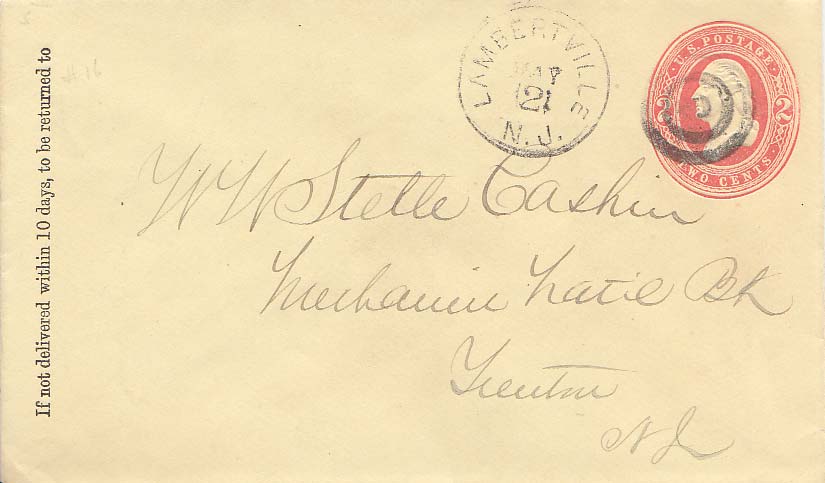 If not delivered within 10 days, to be returned to
LAMBERTVILLE
MAY
21
N. J.
U.S. POSTAGE
2 2
TWO CENTS
W W Stelle Cashier
Mechanics Nat'l Bk
Trenton
N J